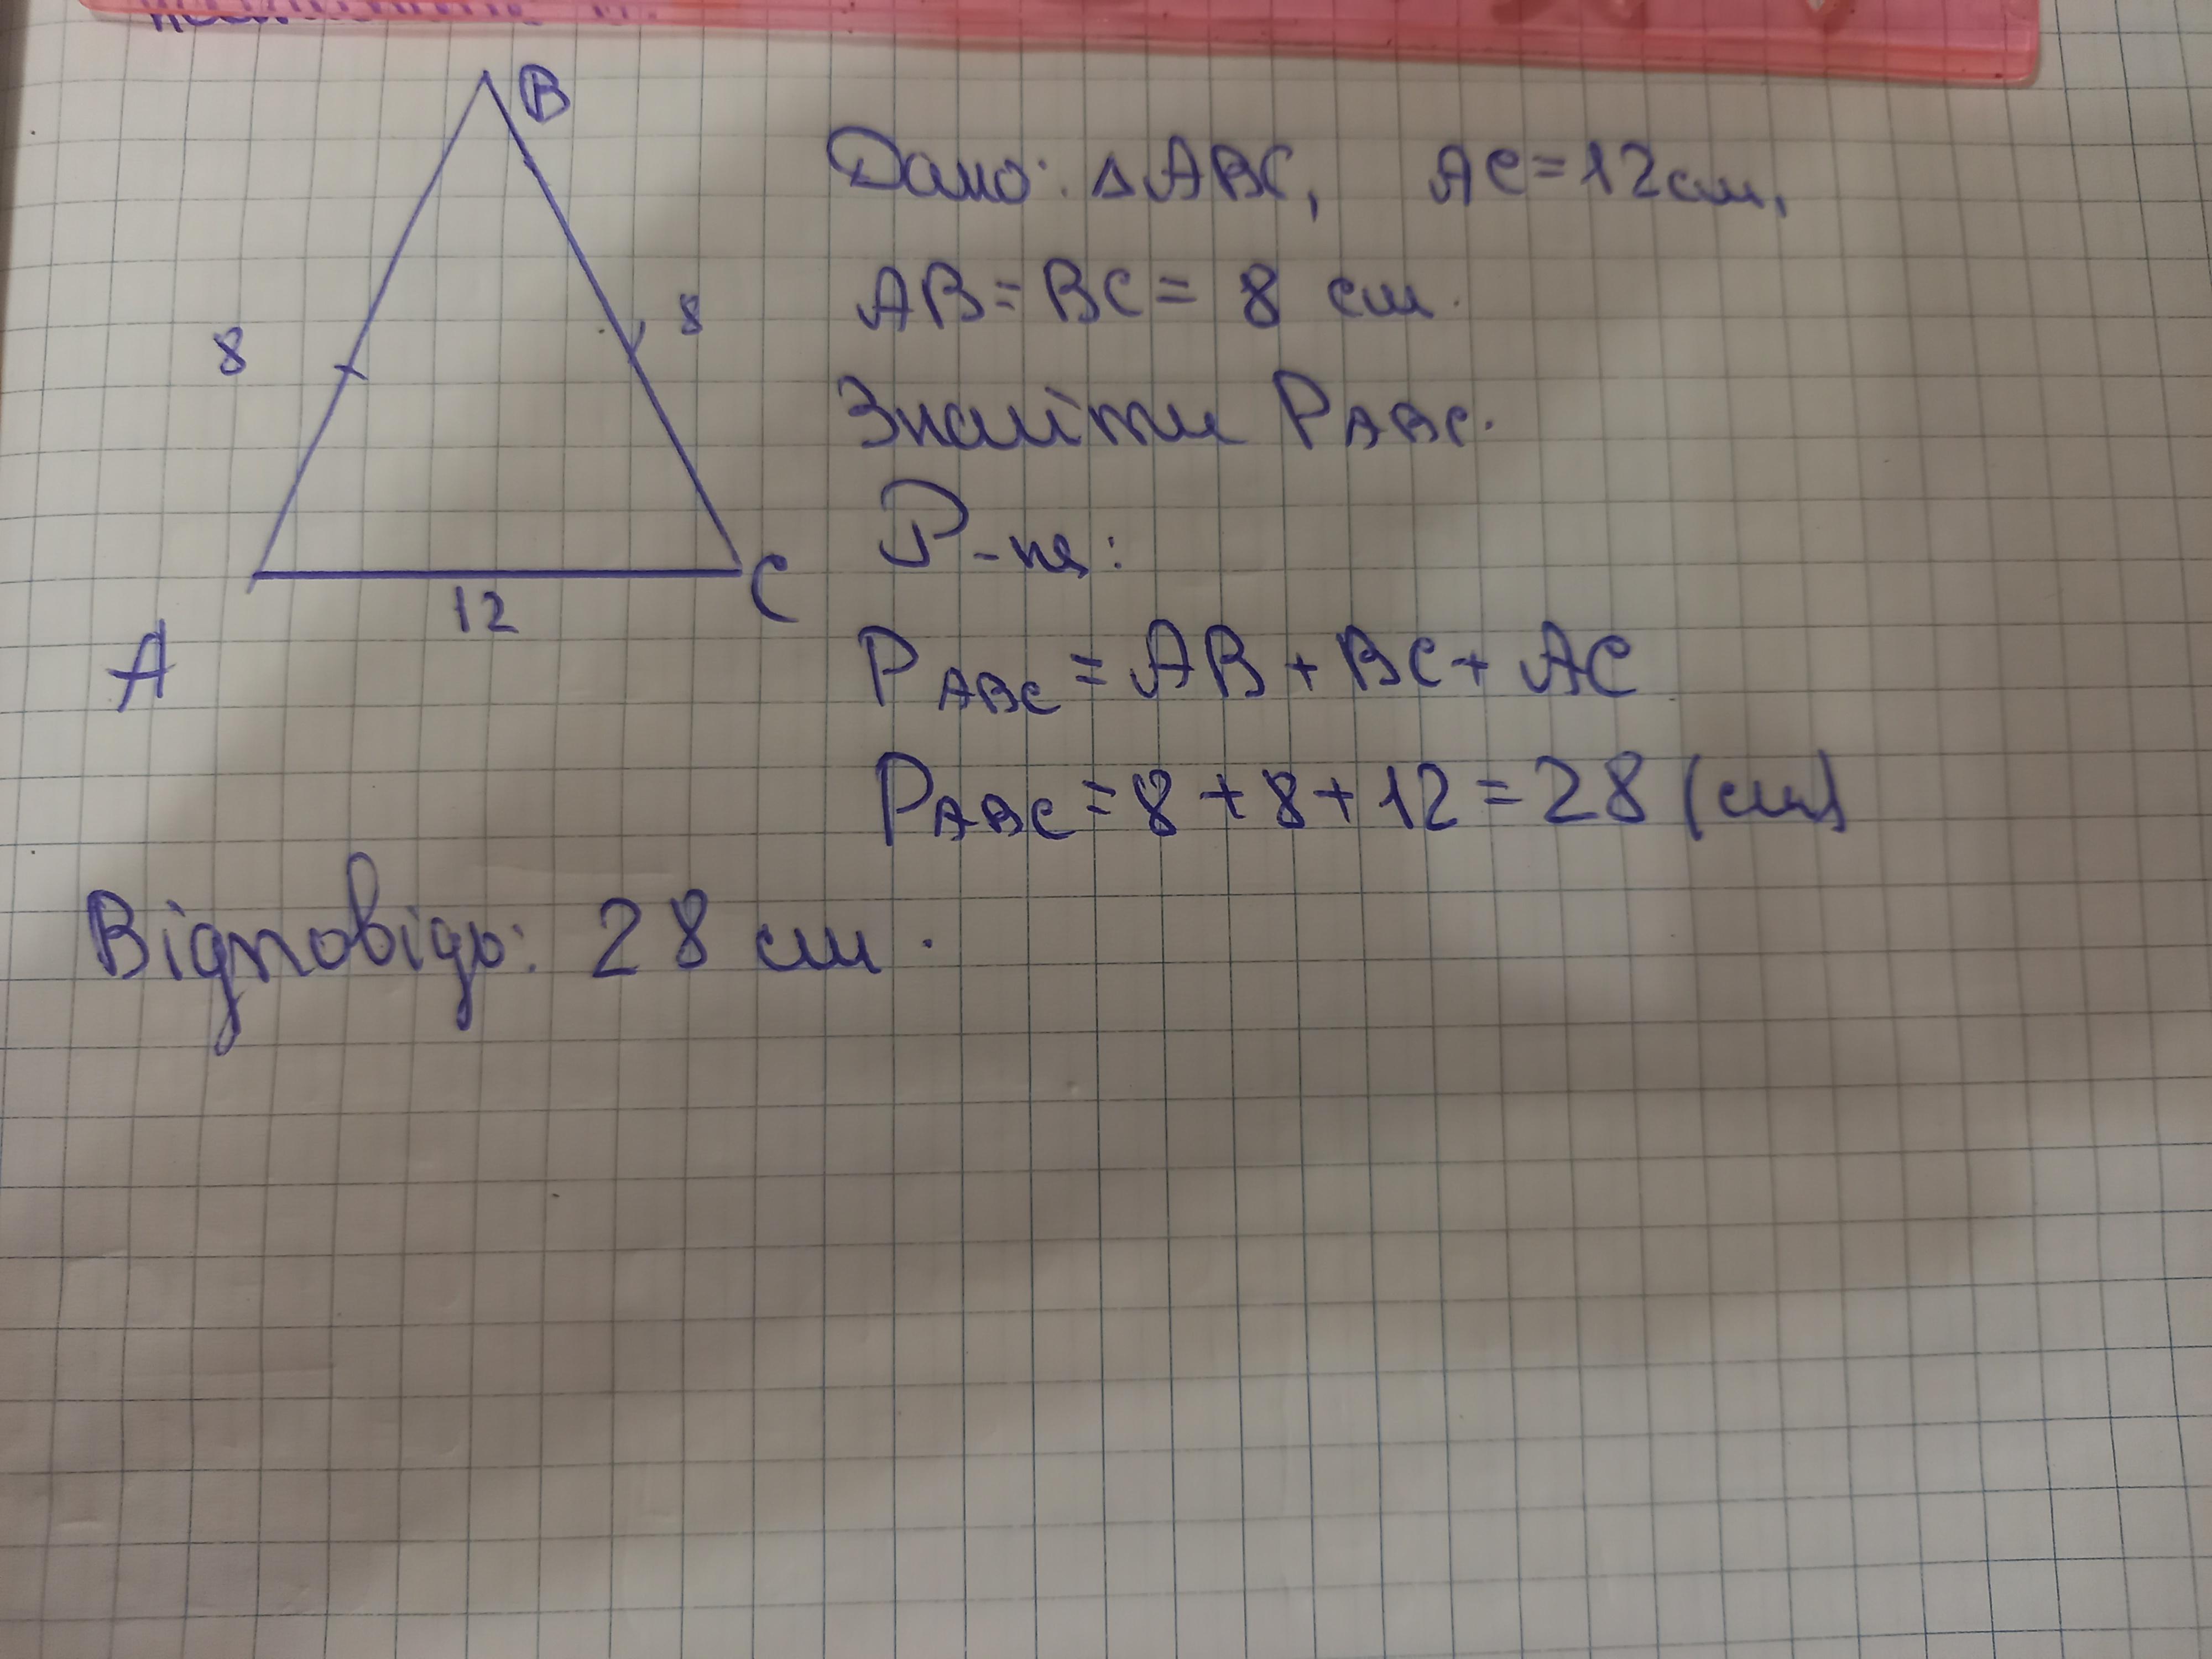 B
8
8
12
A
C
Дано: △ABC, AC=12см,
AB=BC= 8 см.
Знайти P ABC.
Р-ня:
P ABC = AB + BC + AC
P ABC = 8 + 8 + 12 = 28 (см)
Відповідь: 28 см.